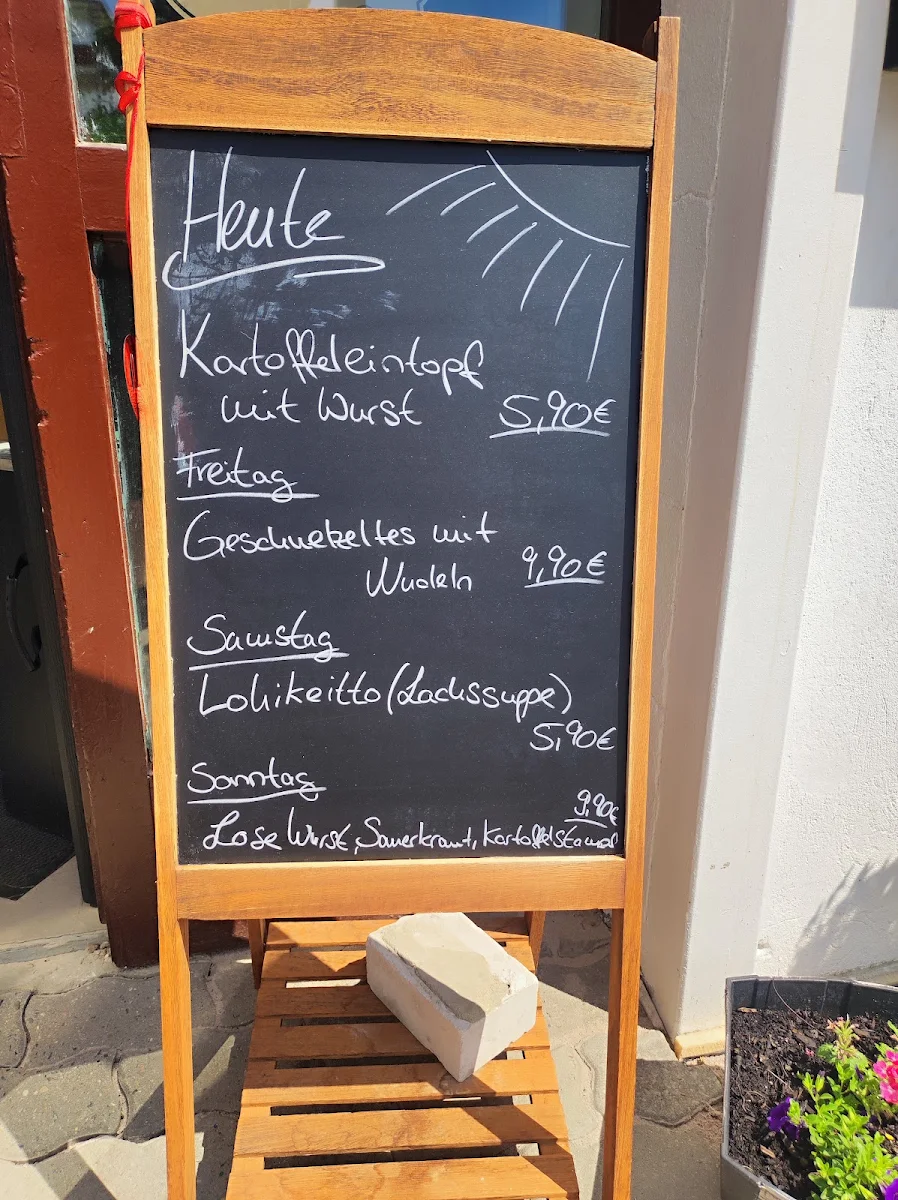 Heute
Kartoffeleintopf
mit Wurst 5,90€
Freitag
Geschnetzeltes mit
Nudeln 9,90€
Samstag
Lohikeitto (Lachssuppe)
5,90€
Sonntag
9,90€
Lose Wurst, Sauerkraut, Kartoffelstampf